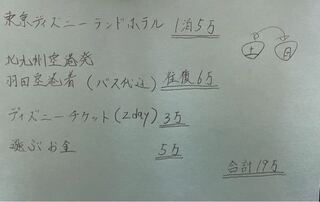 東京ディズニーランドホテル 1泊5万
土 日
北九州空港発
羽田空港着 (バス代込) 往復6万
ディズニーチケット(2day) 3万
遊ぶお金 5万
合計19万